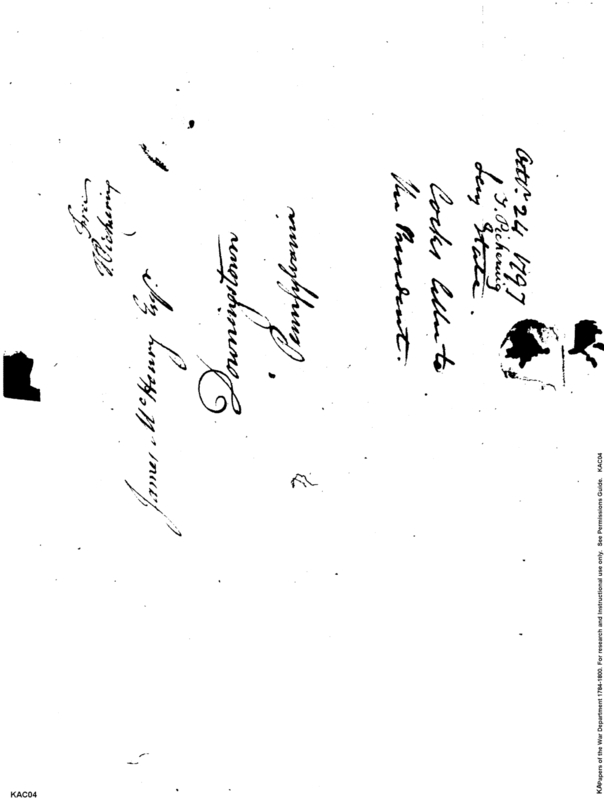 Free
T. Pickering
James McHenry Esqr.
Downingstown
Pennsylvania
Octr. 24 1797
T. Pickering
Secy State.
Cocks letter to
the President.
KAPapers of the War Department 1784-1800. For research and Instructional use only. See Permissions Guide. KAC04
KAC04